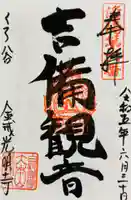 奉拝
令和五年六月二十日
吉備観音
くろ谷
金戒光明寺